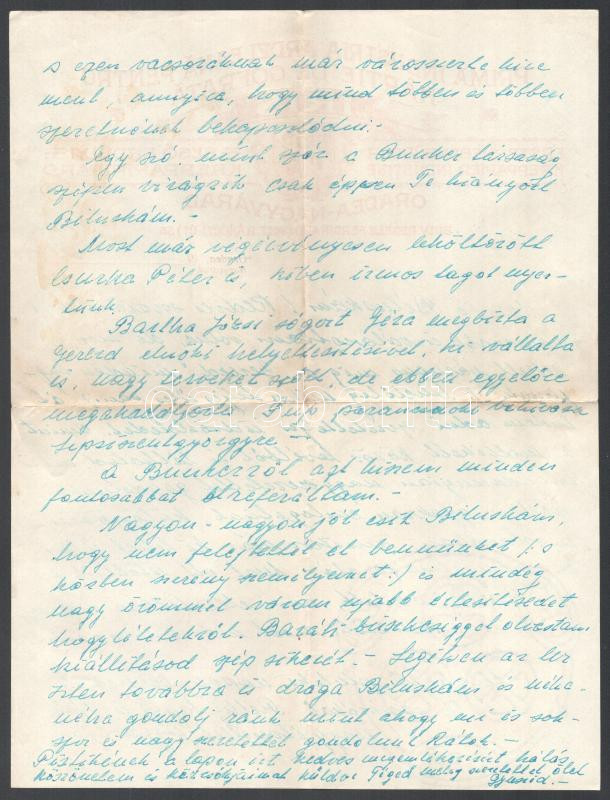 s ezen vacsoráknak már városszerte híre
ment, annyira, hogy mind többen és többen
szeretnének bekapcsolódni.-
Egy szó, mint száz a Bunker társaság
szépen virágzik csak éppen Te hiányzol
Biluskám.-
Most már végérvényesen leköltözött
Csurka Péter is, kiben izmos tagot nyer-
tünk.
Bartha Józsi sógort Géza megbízta a
elnöki helyettesítésével, ki vállalta
is, nagy terveket de ebben egyelőre
megakadályozta
Sepsiszentgyörgyre -
A Bunkerről azt hiszem minden
fontosabbat elreferáltam.-
Nagyon - nagyon jól esik Biluskám,
hogy nem felejtettél el bennünket /: s
közben szerény személyemet :/ és mindég
nagy örömmel várom ujabb értesítésedet
hogylétetekről. Baráti büszkeséggel olvastam
kiállításod szép sikerét.- Segítsen az Úr
Isten továbbra is drága Biluskám és néha-
néha gondolj ránk, mint ahogy mi és sok-
szor és nagy szeretettel gondolunk Rátok.-
a lapon írt kedves megemlékezését hálás
köszönetem és Téged meleg szeretettel ölel